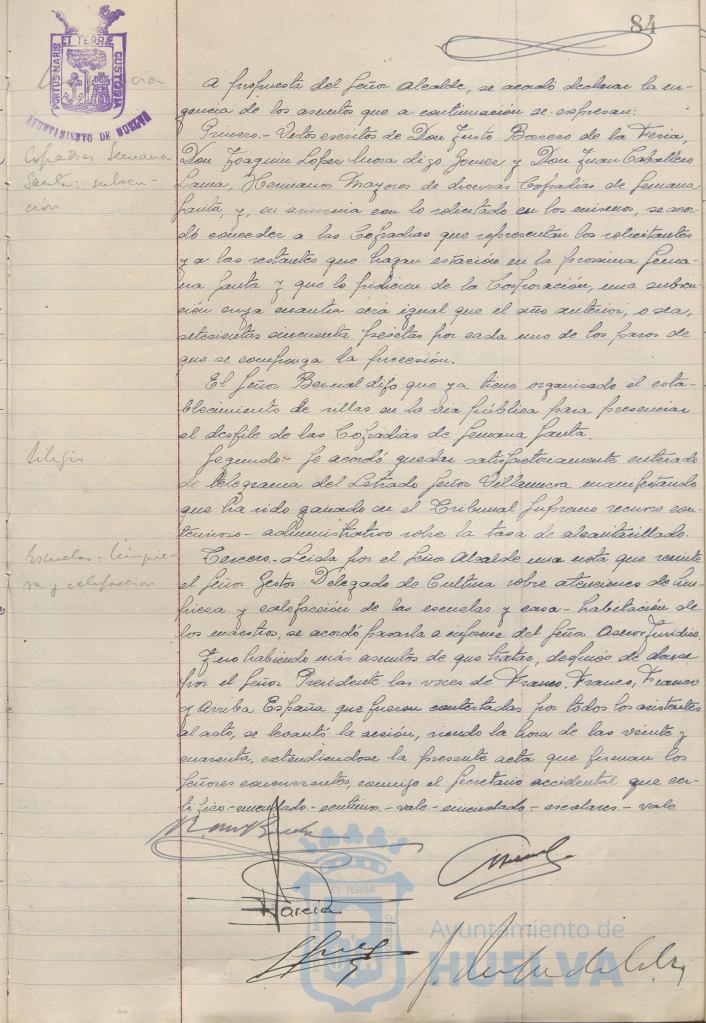 84
PORTUS MARIS ET TERRÆ CUSTODIA
AYUNTAMIENTO DE HUELVA
A propuesta del Señor Alcalde, se acordó declarar la ur-
gencia de los asuntos que a continuación se expresan:
Cofradías Semana
Santa: subven-
ción
Primero.- Vistos escritos de Don Justo Borrero de la Feria,
Don Joaquin López Gomez y Don Juan Caballero
Lama, Hermanos Mayores de diversas Cofradias de Semana
Santa, y, en armonia con lo solicitado en los mismos, se acor-
dó conceder a las Cofradias que representan los solicitantes
y a las restantes que hagan estación en la proxima Sema-
na Santa y que lo pidieren de la Corporación, una subven-
ción cuya cuantia será igual que el año anterior, o sea,
setecientas cincuenta pesetas por cada uno de los pasos de
que se componga la procesión.
El Señor Bernal dijo que ya tiene organizado el esta-
blecimiento de sillas en la via pública para presenciar
el desfile de las Cofradias de Semana Santa.
Segundo:- Se acordó quedar satisfactoriamente enterado
de telegrama del Letrado Señor Villanueva manifestando
que ha sido ganado en el Tribunal Supremo recurso con-
tencioso-administrativo sobre la tasa de alcantarillado.
Escuelas: limpie-
za y calefaccion
Tercero.- Leida por el Señor Alcalde una nota que remite
el Señor Gestor Delegado de Cultura sobre atenciones de lim-
pieza y calefacción de las escuelas y casa-habitación de
los maestros, se acordó pasarla a informe del Señor Asesor Juridico.
Y no habiendo más asuntos de que tratar, después de darse
por el Señor Presidente las voces de Franco, Franco, Franco
y Arriba España que fueron contestadas por todos los asistentes
al acto, se levantó la sesión, siendo la hora de las veinte y
cuarenta, extendiendose la presente acta que firman los
Señores concurrentes, conmigo el Secretario accidental que cer-
tifico-enmendado- -vale-enmendado-escolares.-vale
Garcia
ET TERRÆ
Ayuntamiento de
HUELVA